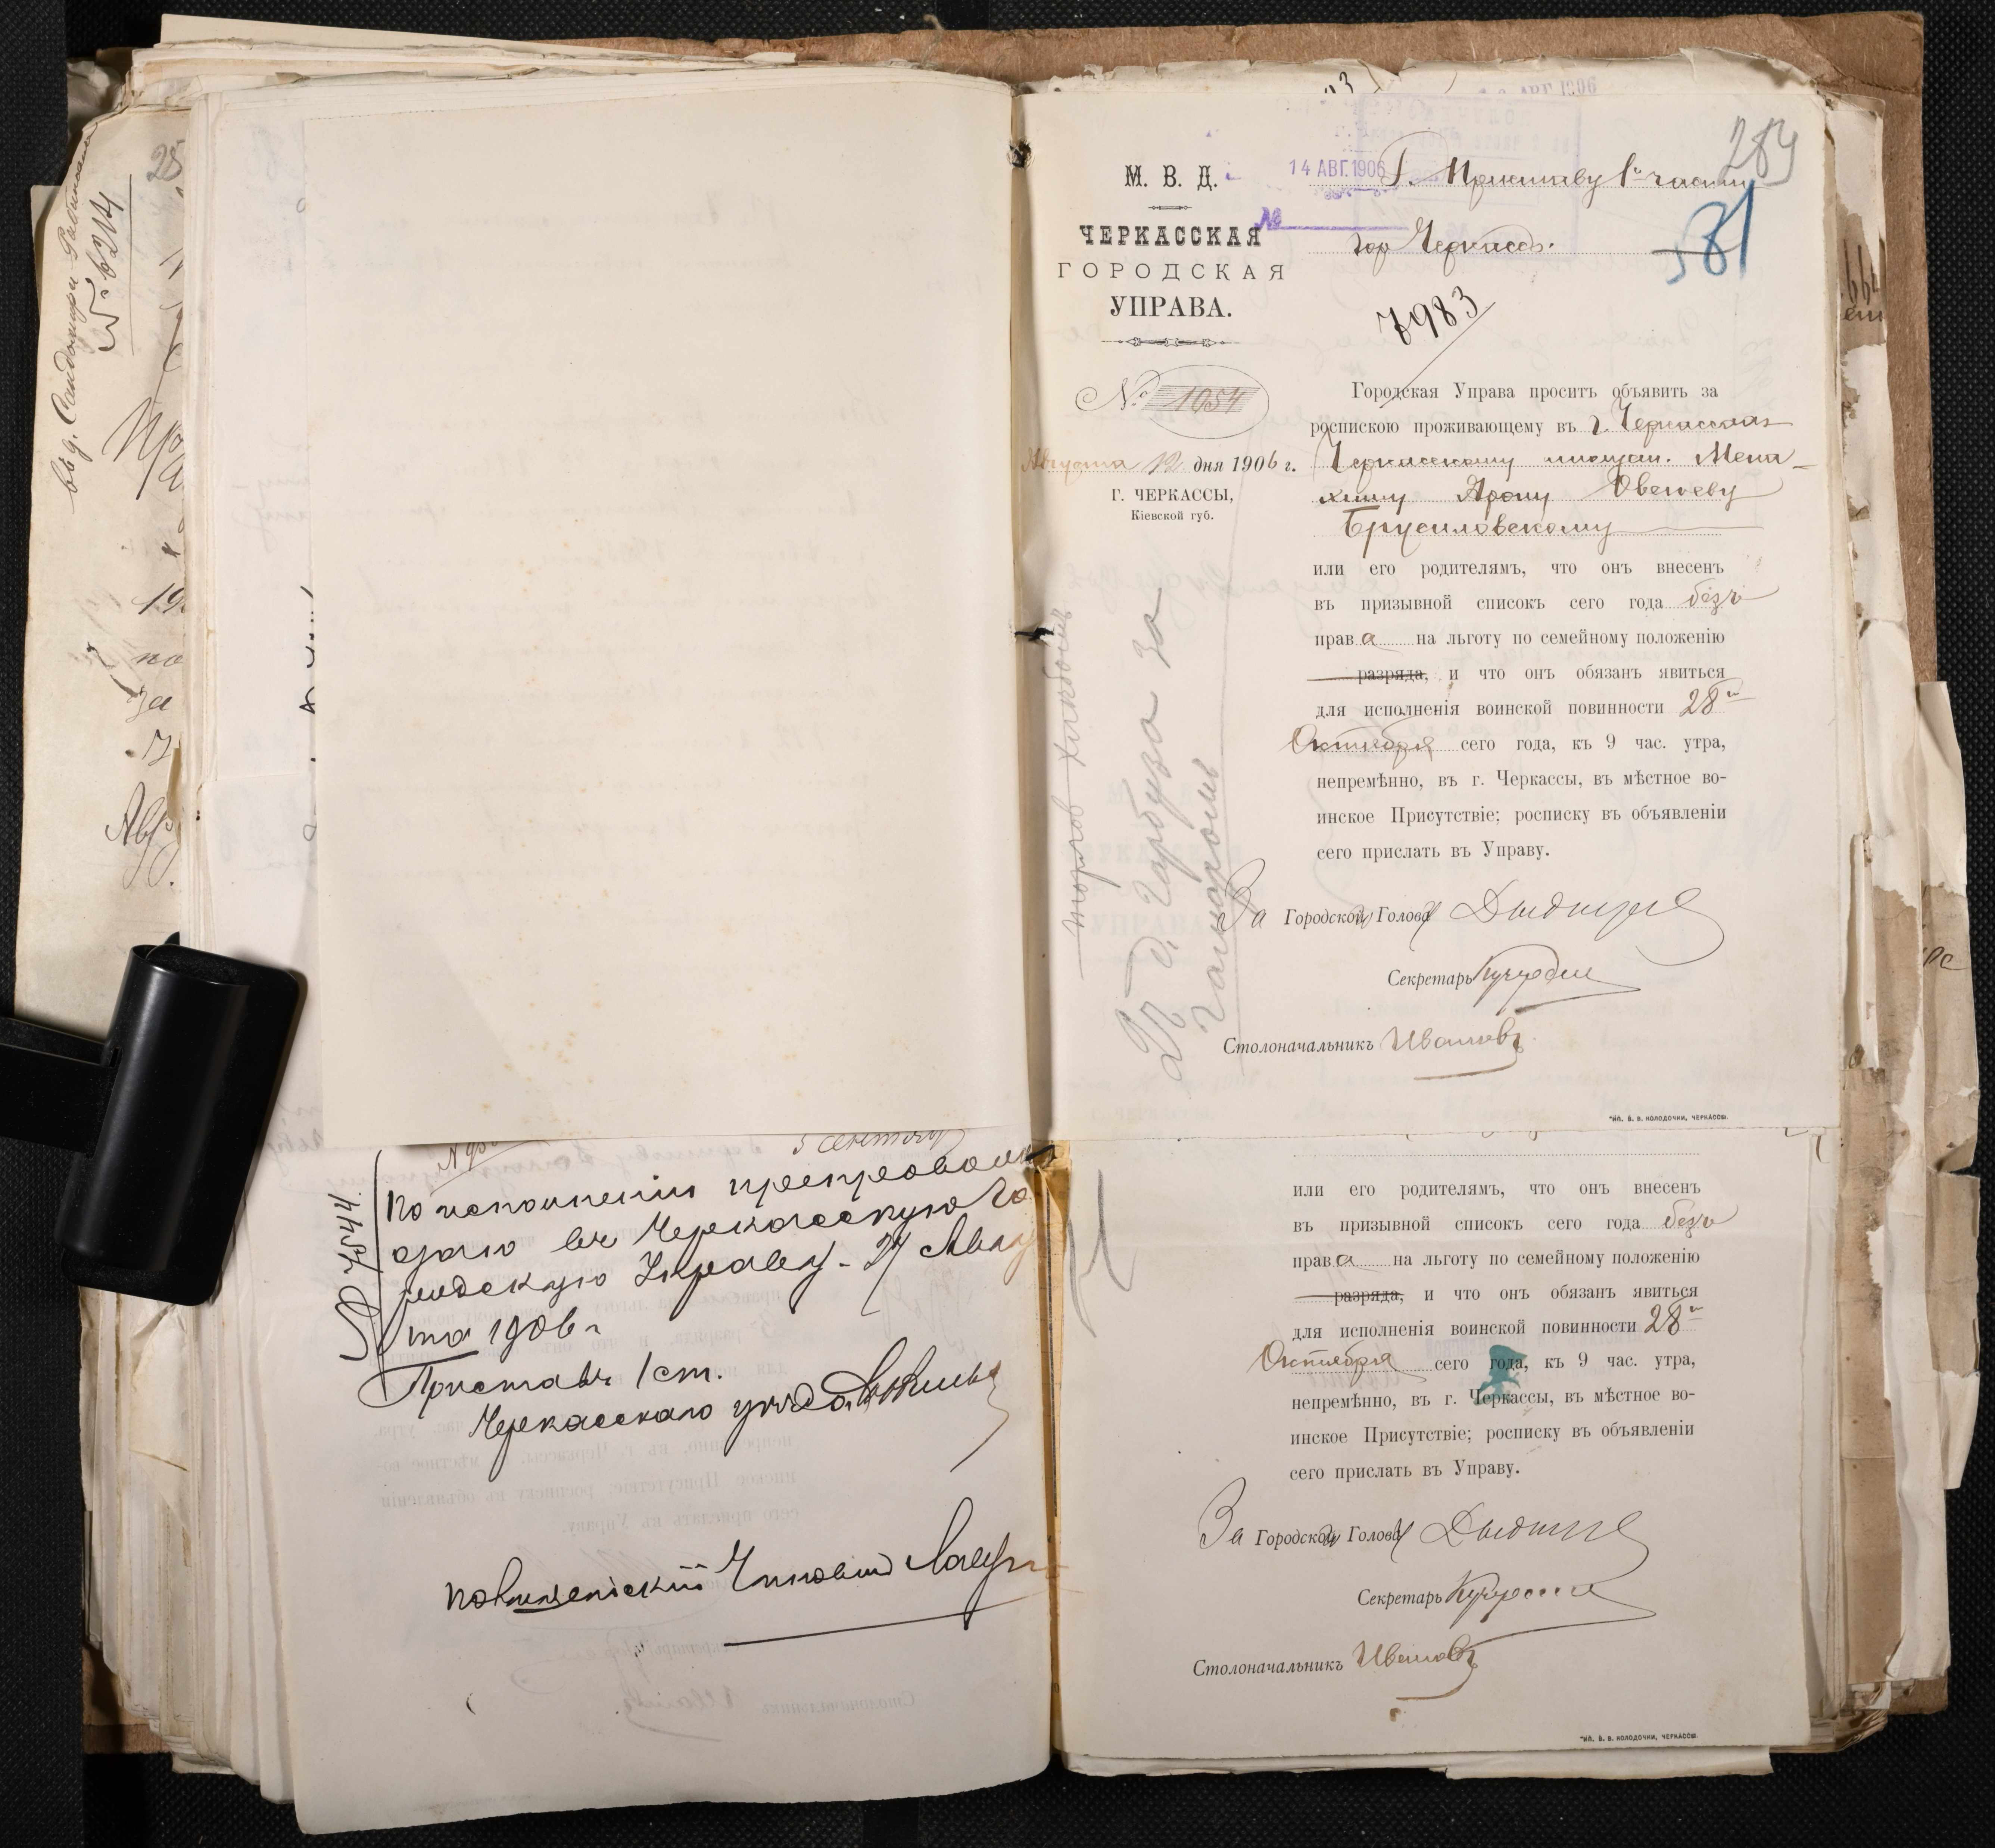 въ д.
№ 6214
М. В. Д.
ЧЕРКАССКАЯ
ГОРОДСКАЯ
УПРАВА.
№ 1054
Августа 12 дня 1906 г.
Г. ЧЕРКАССЫ,
Кіевской губ.
14 АВГ. 1906
№
Г. Приставу 1й части
гор Черкассъ.
289
581
7983
Городская Управа проситъ объявить за
роспискою проживающему въ г. Черкассахъ
Черкасскому мещан. Мена-
химу Арону Овсееву
Брусиловскому
или его родителямъ, что онъ внесенъ
въ призывной списокъ сего года безъ
права на льготу по семейному положенію
разряда, и что онъ обязанъ явиться
для исполненія воинской повинности 28го
Октября сего года, къ 9 час. утра,
непремѣнно, въ г. Черкассы, въ мѣстное во-
инское Присутствіе; росписку въ объявленіи
сего прислать въ Управу.
За Городской Голова
Секретарь
Столоначальникъ Ивановъ
д. Гарбуза за
Тип. В. В. КОЛОДОЧКИ, ЧЕРКАССЫ.
№ 7544.
По исполненіи препровож
даю въ Черкасскую Го
родскую Управу. 27 Авгу
ста 1906 г
Приставъ 1 ст.
Черкасскаго уезда
Полицейскій
или его родителямъ, что онъ внесенъ
въ призывной списокъ сего года безъ
права на льготу по семейному положенію
разряда, и что онъ обязанъ явиться
для исполненія воинской повинности 28го
Октября сего года, къ 9 час. утра,
непремѣнно, въ г. Черкассы, въ мѣстное во-
инское Присутствіе; росписку въ объявленіи
сего прислать въ Управу.
За Городской Голова
Секретарь
Столоначальникъ Ивановъ
Тип. В. В. КОЛОДОЧКИ, ЧЕРКАССЫ.